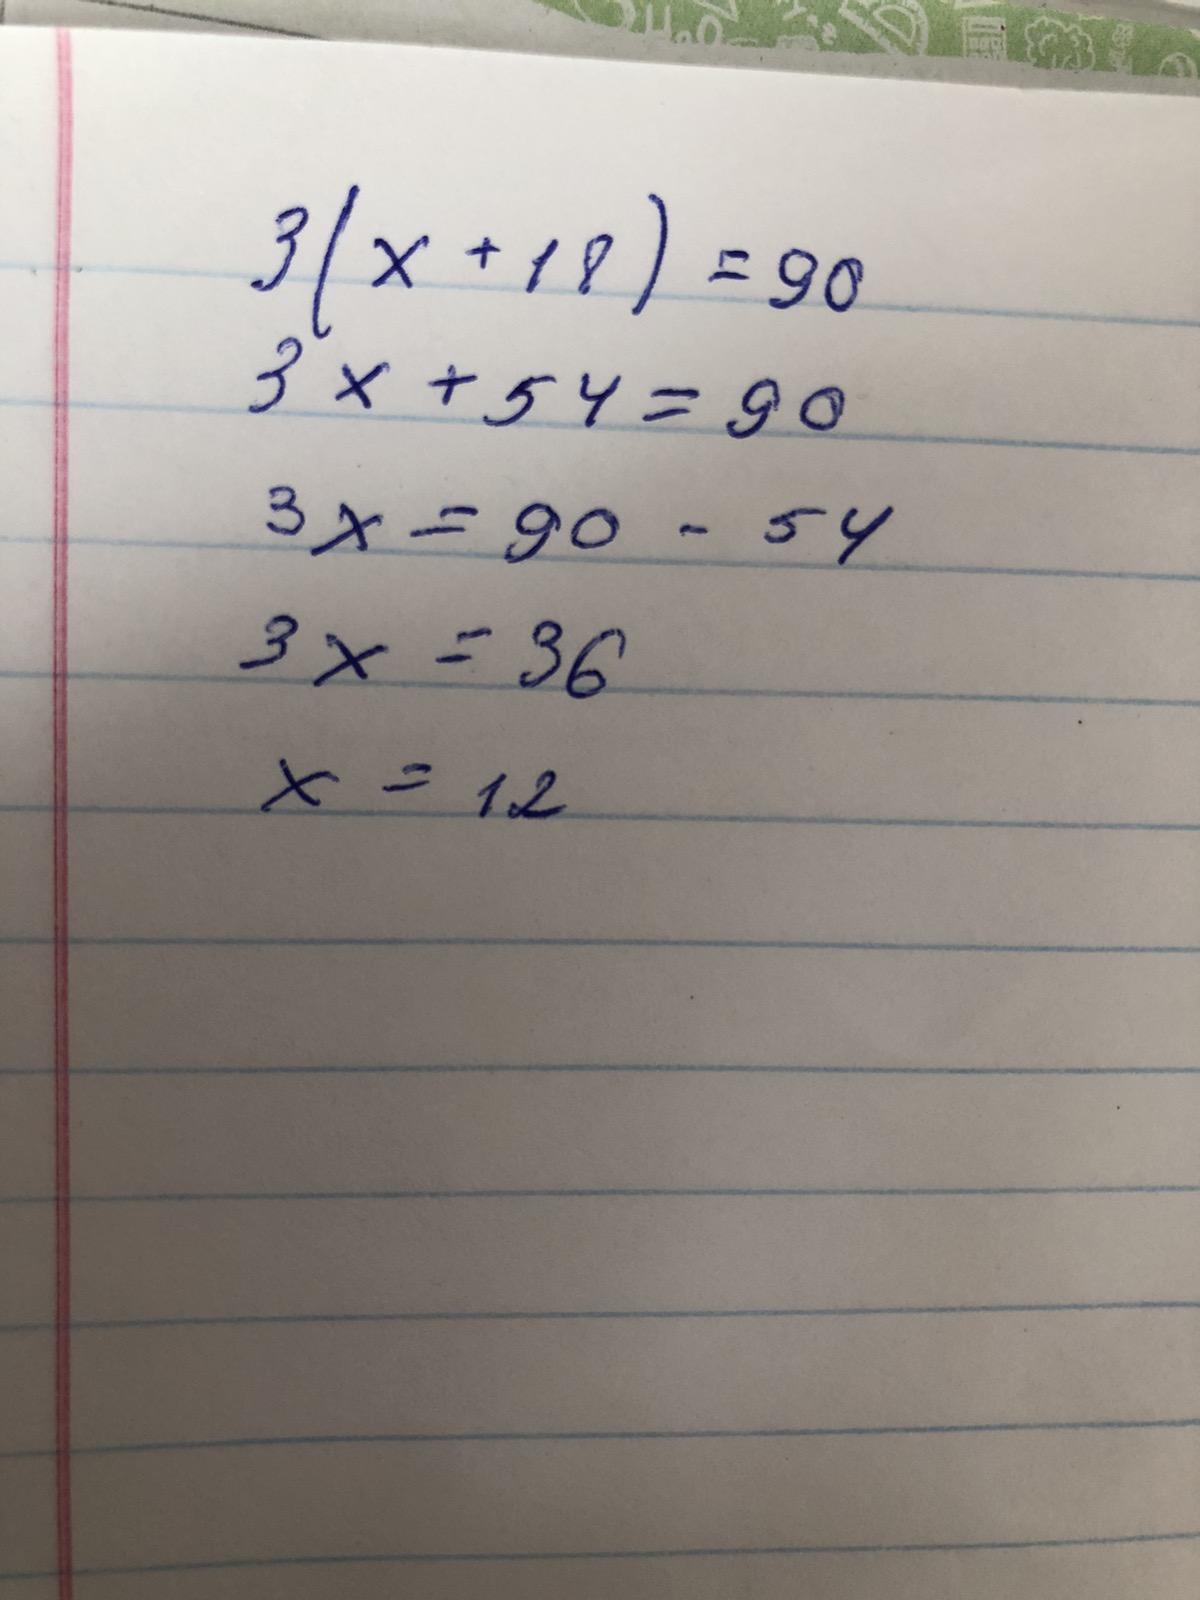 H₂O
3(x+18)=90
3x+54=90
3x=90-54
3x=36
x=12